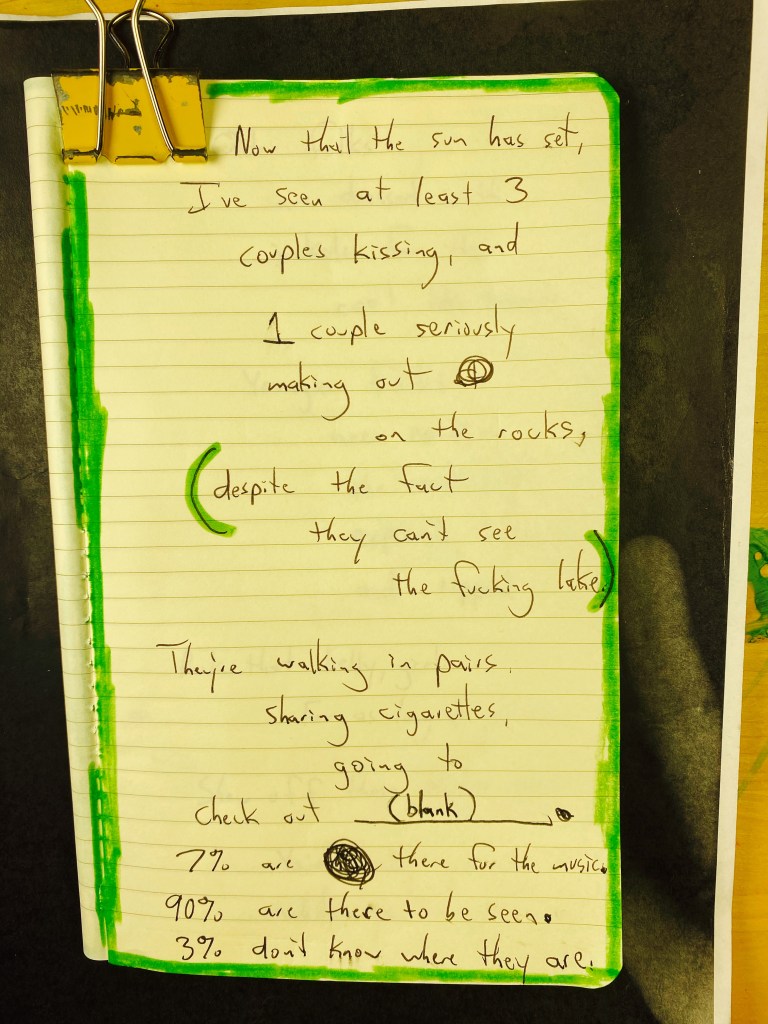 Now that the sun has set,
I've seen at least 3
couples kissing, and
1 couple seriously
making out
on the rocks,
(despite the fact
they can't see
the fucking lake.)
They're walking in pairs,
sharing cigarettes,
going to
check out (blank).
7% are there for the music.
90% are there to be seen.
3% don't know where they are.